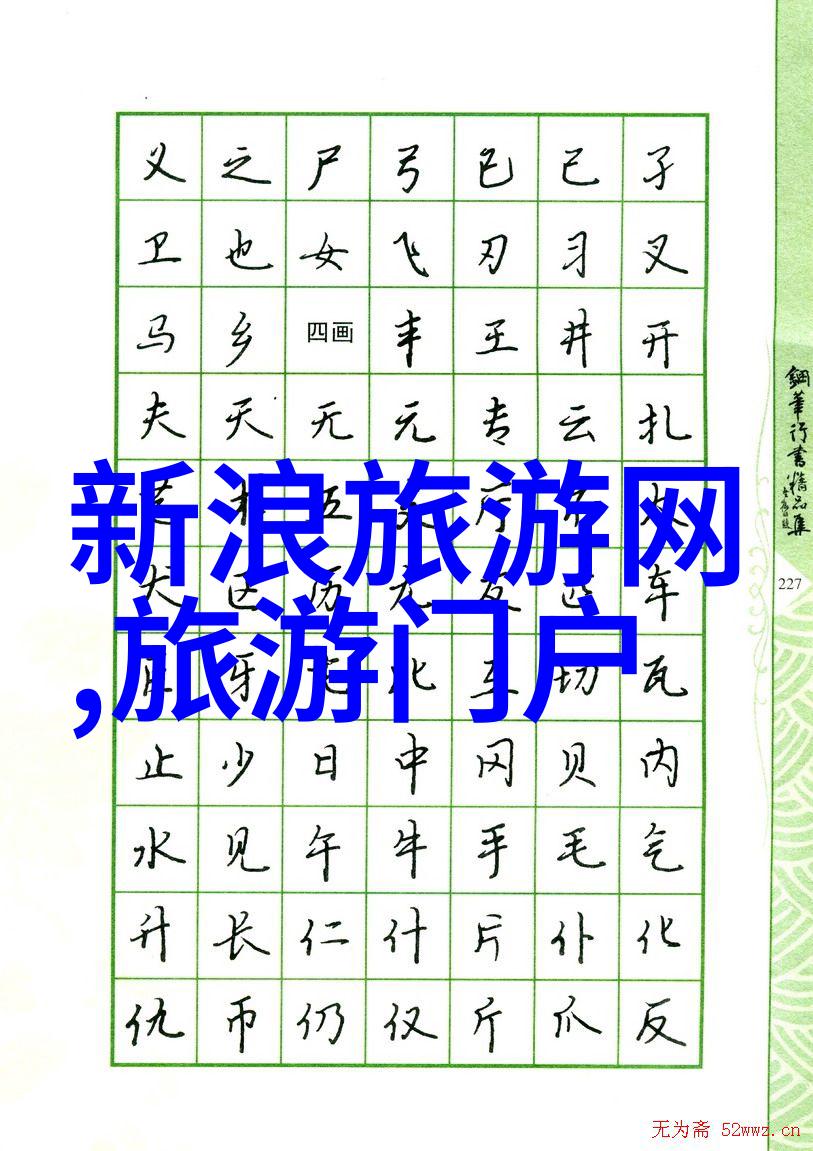 义 之 尸 弓 己 已 子
卫 也 女 飞 刃 习 叉
马 乡 四画 丰 王 井 开
夫 天 无 元 专 云 扎
新浪旅游网
艺 木 五 厅
犬 区 历 尤 友 匹 车
,旅游门户
牙 屯 比 互 切 瓦
止 少 日 中 冈 贝 内
水 见 午 牛 手 毛 气
升 长 仁 什 片 仆 化
仇 币 仍 仅 斤 爪 反
鋼筆行書精品集
227
无为斋 52wwz.cn